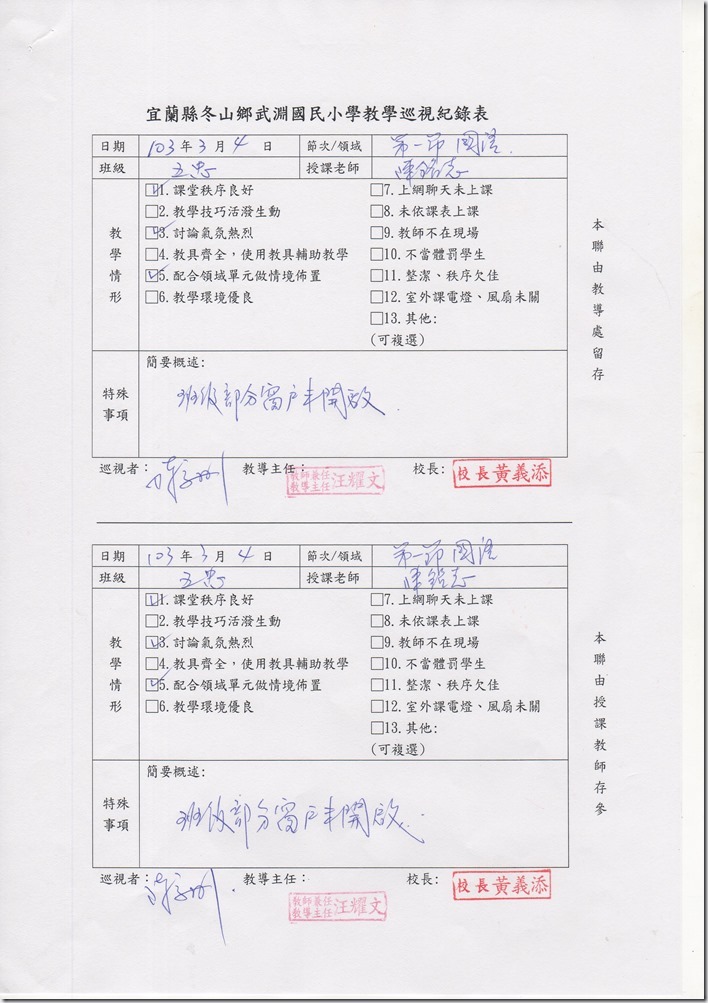 宜蘭縣冬山鄉武淵國民小學教學巡視紀錄表
日期 103年3月4日 節次/領域 第一節 國語
班級 五忠 授課老師 陳銘志
教學情形
☑1.課堂秩序良好 □7.上網聊天未上課
□2.教學技巧活潑生動 □8.未依課表上課
☑3.討論氣氛熱烈 □9.教師不在現場
□4.教具齊全，使用教具輔助教學 □10.不當體罰學生
☑5.配合領域單元做情境佈置 □11.整潔、秩序欠佳
□6.教學環境優良 □12.室外課電燈、風扇未關
□13.其他:
(可複選)
特殊事項
簡要概述:
班級部分窗戶未開啟
巡視者： 教導主任： 教師兼任教導主任汪耀文 校長: 校長黃義添
本聯由教導處留存
日期 103年3月4日 節次/領域 第一節 國語
班級 五忠 授課老師 陳銘志
教學情形
☑1.課堂秩序良好 □7.上網聊天未上課
□2.教學技巧活潑生動 □8.未依課表上課
☑3.討論氣氛熱烈 □9.教師不在現場
□4.教具齊全，使用教具輔助教學 □10.不當體罰學生
☑5.配合領域單元做情境佈置 □11.整潔、秩序欠佳
□6.教學環境優良 □12.室外課電燈、風扇未關
□13.其他:
(可複選)
特殊事項
簡要概述:
班級部分窗戶未開啟.
巡視者： 教導主任： 教師兼任教導主任汪耀文 校長: 校長黃義添
本聯由授課教師存參